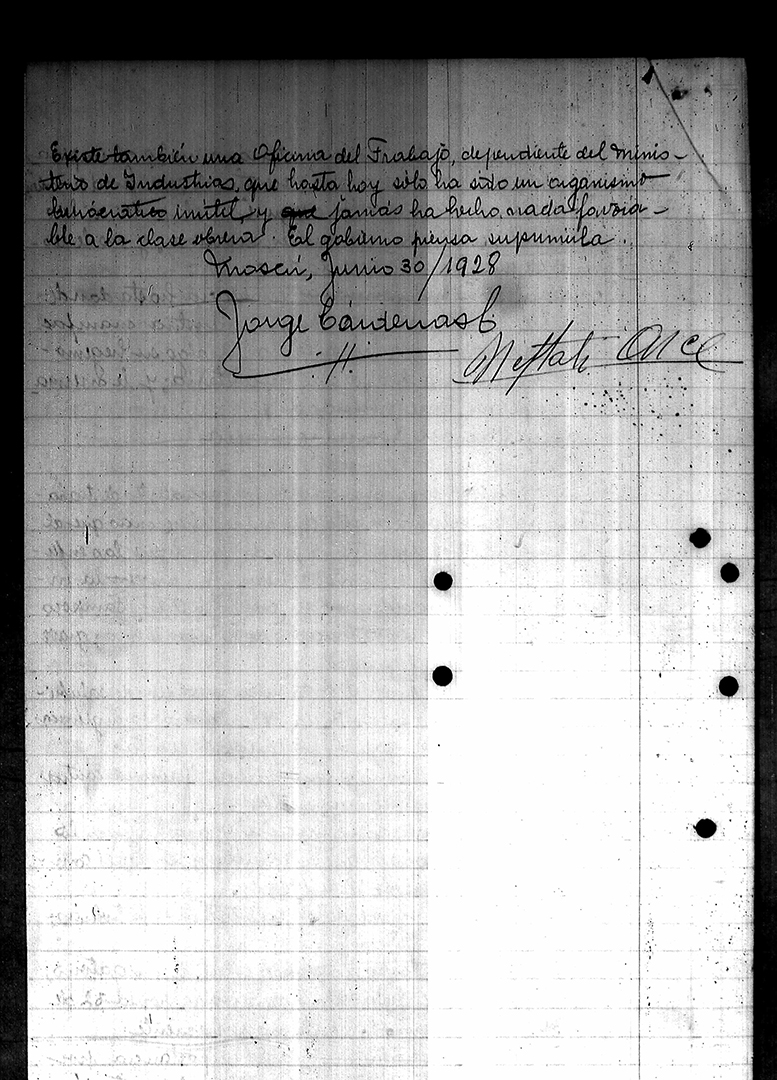 Existe también una Oficina del Trabajo, dependiente del Minis-
terio de Industrias, que hasta hoy sólo ha sido un organismo
burócratico inutil, y que jamás ha hecho nada favora-
ble a la clase obrera. El gobierno piensa suprimirla.
Moscú, Junio 30/1928
Jorge Cárdenas C.
Neftalí Arce